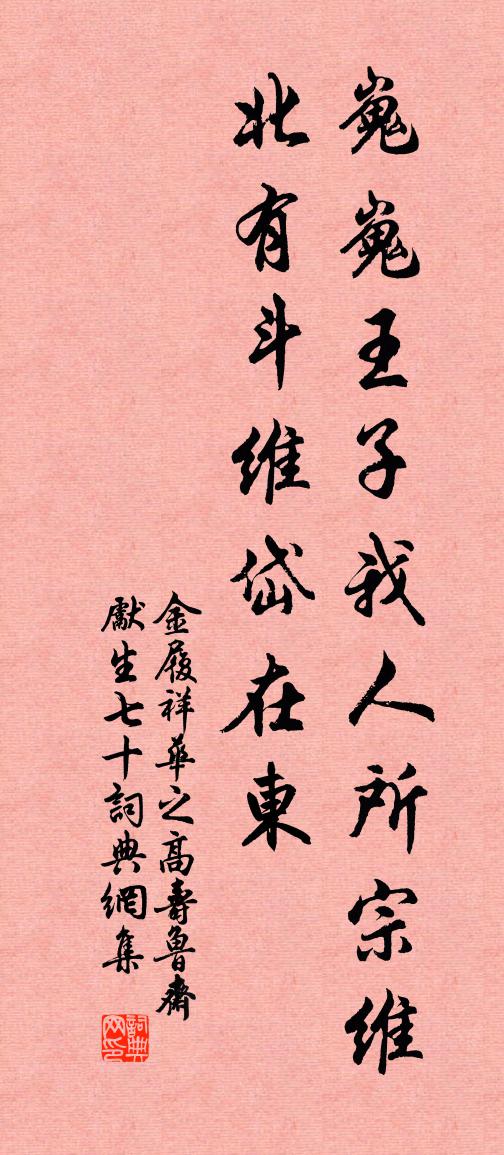 嵬嵬王子我人所宗維
北有斗維岱在東
金履祥華之高壽魯齋
獻生七十詞典網集
詞典网印